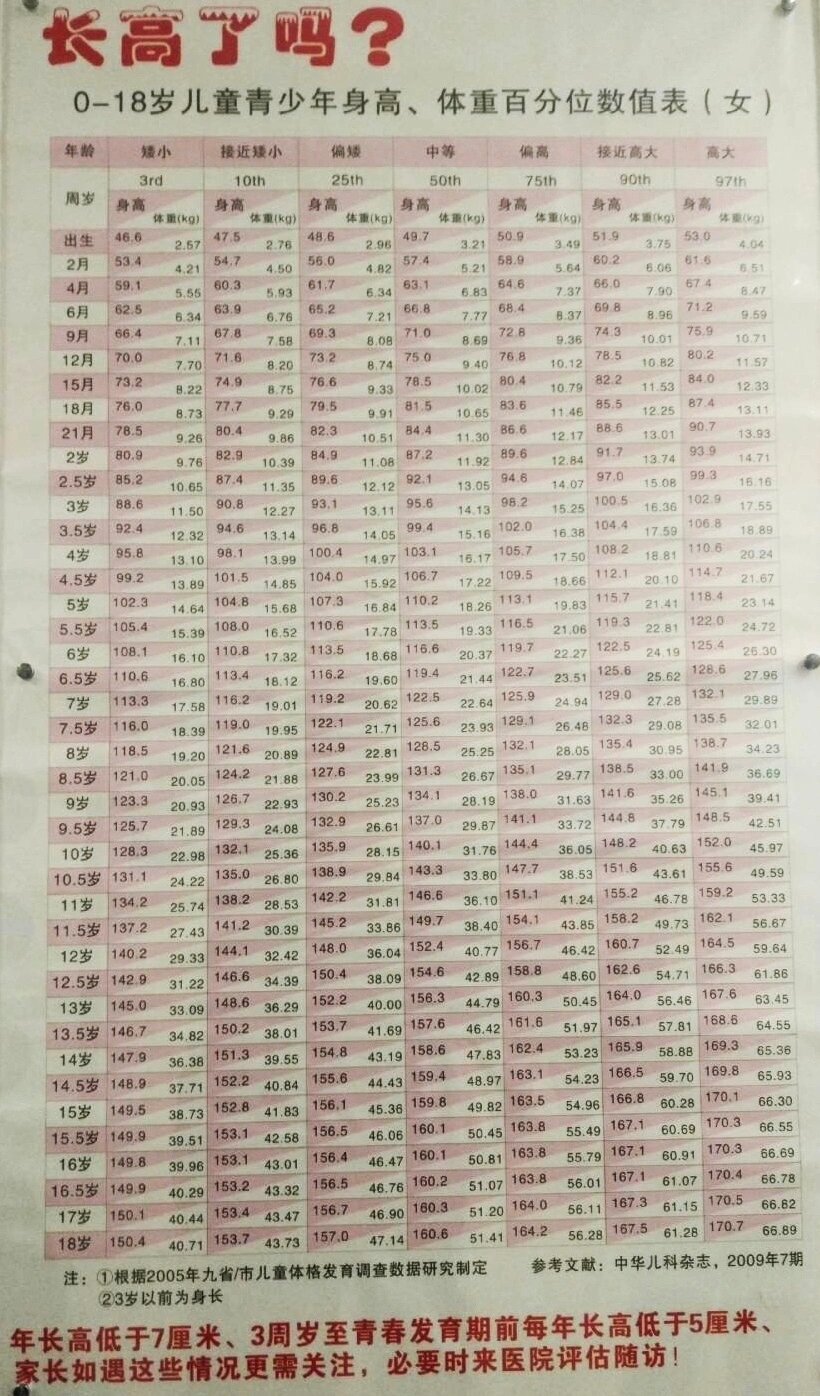 长高了吗?
0-18岁儿童青少年身高、体重百分位数值表(女)
年龄 矮小 接近矮小 偏矮 中等 偏高 接近高大 高大
3rd 10th 25th 50th 75th 90th 97th
周岁 身高 体重(kg) 身高 体重(kg) 身高 体重(kg) 身高 体重(kg) 身高 体重(kg) 身高 体重(kg) 身高 体重(kg)
出生 46.6 2.57 47.5 2.76 48.6 2.96 49.7 3.21 50.9 3.49 51.9 3.75 53.0 4.04
2月 53.4 4.21 54.7 4.50 56.0 4.82 57.4 5.21 58.9 5.64 60.2 6.06 61.6 6.51
4月 59.1 5.55 60.3 5.93 61.7 6.34 63.1 6.83 64.6 7.37 66.0 7.90 67.4 8.47
6月 62.5 6.34 63.9 6.76 65.2 7.21 66.8 7.77 68.4 8.37 69.8 8.96 71.2 9.59
9月 66.4 7.11 67.8 7.58 69.3 8.08 71.0 8.69 72.8 9.36 74.3 10.01 75.9 10.71
12月 70.0 7.70 71.6 8.20 73.2 8.74 75.0 9.40 76.8 10.12 78.5 10.82 80.2 11.57
15月 73.2 8.22 74.9 8.75 76.6 9.33 78.5 10.02 80.4 10.79 82.2 11.53 84.0 12.33
18月 76.0 8.73 77.7 9.29 79.5 9.91 81.5 10.65 83.6 11.46 85.5 12.25 87.4 13.11
21月 78.5 9.26 80.4 9.86 82.3 10.51 84.4 11.30 86.6 12.17 88.6 13.01 90.7 13.93
2岁 80.9 9.76 82.9 10.39 84.9 11.08 87.2 11.92 89.6 12.84 91.7 13.74 93.9 14.71
2.5岁 85.2 10.65 87.4 11.35 89.6 12.12 92.1 13.05 94.6 14.07 97.0 15.08 99.3 16.16
3岁 88.6 11.50 90.8 12.27 93.1 13.11 95.6 14.13 98.2 15.25 100.5 16.36 102.9 17.55
3.5岁 92.4 12.32 94.6 13.14 96.8 14.05 99.4 15.16 102.0 16.38 104.4 17.59 106.8 18.89
4岁 95.8 13.10 98.1 13.99 100.4 14.97 103.1 16.17 105.7 17.50 108.2 18.81 110.6 20.24
4.5岁 99.2 13.89 101.5 14.85 104.0 15.92 106.7 17.22 109.5 18.66 112.1 20.10 114.7 21.67
5岁 102.3 14.64 104.8 15.68 107.3 16.84 110.2 18.26 113.1 19.83 115.7 21.41 118.4 23.14
5.5岁 105.4 15.39 108.0 16.52 110.6 17.78 113.5 19.33 116.5 21.06 119.3 22.81 122.0 24.72
6岁 108.1 16.10 110.8 17.32 113.5 18.68 116.6 20.37 119.7 22.27 122.5 24.19 125.4 26.30
6.5岁 110.6 16.80 113.4 18.12 116.2 19.60 119.4 21.44 122.7 23.51 125.6 25.62 128.6 27.96
7岁 113.3 17.58 116.2 19.01 119.2 20.62 122.5 22.64 125.9 24.94 129.0 27.28 132.1 29.89
7.5岁 116.0 18.39 119.0 19.95 122.1 21.71 125.6 23.93 129.1 26.48 132.3 29.08 135.5 32.01
8岁 118.5 19.20 121.6 20.89 124.9 22.81 128.5 25.25 132.1 28.05 135.4 30.95 138.7 34.23
8.5岁 121.0 20.05 124.2 21.88 127.6 23.99 131.3 26.67 135.1 29.77 138.5 33.00 141.9 36.69
9岁 123.3 20.93 126.7 22.93 130.2 25.23 134.1 28.19 138.0 31.63 141.6 35.26 145.1 39.41
9.5岁 125.7 21.89 129.3 24.08 132.9 26.61 137.0 29.87 141.1 33.72 144.8 37.79 148.5 42.51
10岁 128.3 22.98 132.1 25.36 135.9 28.15 140.1 31.76 144.4 36.05 148.2 40.63 152.0 45.97
10.5岁 131.1 24.22 135.0 26.80 138.9 29.84 143.3 33.80 147.7 38.53 151.6 43.61 155.6 49.59
11岁 134.2 25.74 138.2 28.53 142.2 31.81 146.6 36.10 151.1 41.24 155.2 46.78 159.2 53.33
11.5岁 137.2 27.43 141.2 30.39 145.2 33.86 149.7 38.40 154.1 43.85 158.2 49.73 162.1 56.67
12岁 140.2 29.33 144.1 32.42 148.0 36.04 152.4 40.77 156.7 46.42 160.7 52.49 164.5 59.64
12.5岁 142.9 31.22 146.6 34.39 150.4 38.09 154.6 42.89 158.8 48.60 162.6 54.71 166.3 61.86
13岁 145.0 33.09 148.6 36.29 152.2 40.00 156.3 44.79 160.3 50.45 164.0 56.46 167.6 63.45
13.5岁 146.7 34.82 150.2 38.01 153.7 41.69 157.6 46.42 161.6 51.97 165.1 57.81 168.6 64.55
14岁 147.9 36.38 151.3 39.55 154.8 43.19 158.6 47.83 162.4 53.23 165.9 58.88 169.3 65.36
14.5岁 148.9 37.71 152.2 40.84 155.6 44.43 159.4 48.97 163.1 54.23 166.5 59.70 169.8 65.93
15岁 149.5 38.73 152.8 41.83 156.1 45.36 159.8 49.82 163.5 54.96 166.8 60.28 170.1 66.30
15.5岁 149.9 39.51 153.1 42.58 156.5 46.06 160.1 50.45 163.8 55.49 167.1 60.69 170.3 66.55
16岁 149.8 39.96 153.1 43.01 156.4 46.47 160.1 50.81 163.8 55.79 167.1 60.91 170.3 66.69
16.5岁 149.9 40.29 153.2 43.32 156.5 46.76 160.2 51.07 163.8 56.01 167.1 61.07 170.4 66.78
17岁 150.1 40.44 153.4 43.47 156.7 46.90 160.3 51.20 164.0 56.11 167.3 61.15 170.5 66.82
18岁 150.4 40.71 153.7 43.73 157.0 47.14 160.6 51.41 164.2 56.28 167.5 61.28 170.7 66.89
注:①根据2005年九省/市儿童体格发育调查数据研究制定 参考文献:中华儿科杂志,2009年7期
②3岁以前为身长
年长高低于7厘米、3周岁至青春发育期前每年长高低于5厘米、
家长如遇这些情况更需关注,必要时来医院评估随访!